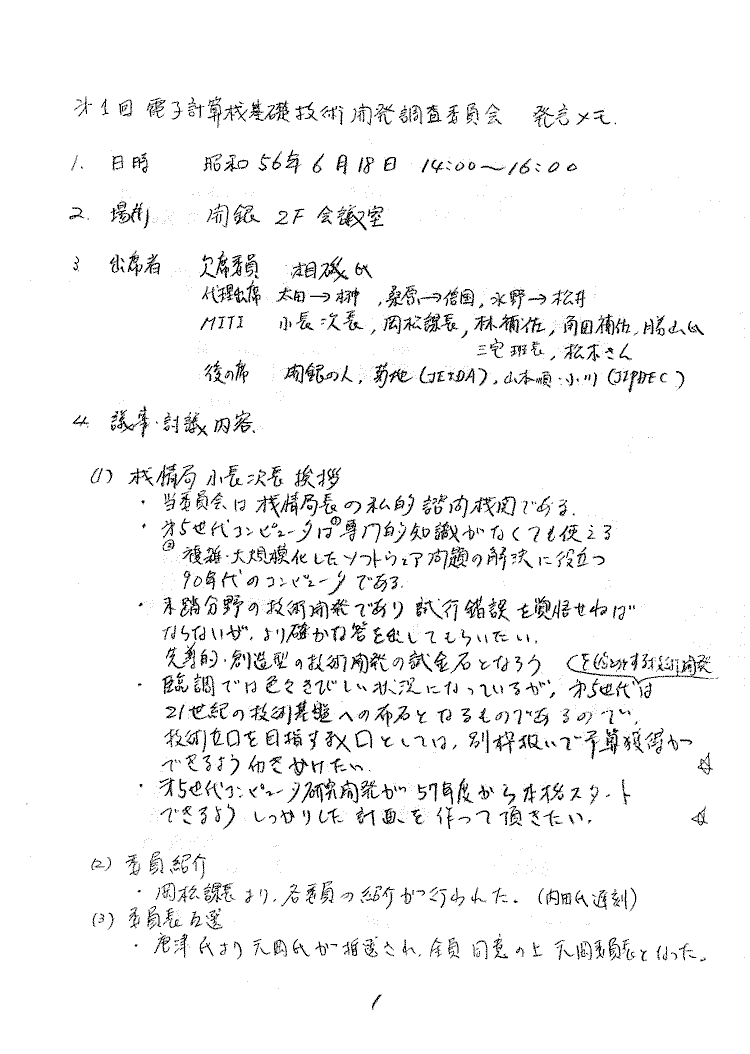 第1回 電子計算機基礎技術開発調査委員会 発言メモ.
1. 日時 昭和56年6月18日 14:00〜16:00
2. 場所 開銀 2F 会議室
3. 出席者 欠席委員 相磯氏
代理出席 太田→榊, 桑原→信国, 水野→松井
MITI 小長次長, 岡松課長, 林補佐, 角田補佐, 勝山氏
三宅班長, 松本さん
後の席 開銀の人, 菊地(JEIDA), 山本順・小川(JIPDEC)
4. 議事・討議内容
(1) 機情局 小長次長 挨拶
・当委員会は機情局長の私的諮問機関である.
・第5世代コンピュータは①専門的知識がなくても使える
②複雑・大規模化したソフトウェア問題の解決に役立つ
90年代のコンピュータである.
・未踏分野の技術開発であり試行錯誤を覚悟せねば
ならないが, より確かな答を出してもらいたい.
先導的・創造型の技術開発の試金石となろう
・臨調では色々きびしい状況になっているが, 第5世代は
技術開発
21世紀の技術基盤への布石となるものであるので,
技術立国を目指す我国としては, 別枠扱いで予算獲得が
できるよう働きかけたい. ☆
・第5世代コンピュータ研究開発が57年度から本格スタート
できるよう しっかりした計画を作って頂きたい. ☆
(2) 委員紹介
・岡松課長より, 各委員の紹介が行われた. (内田氏遅刻)
(3) 委員長互選
・唐津氏より元岡氏が推選され, 全員同意の上 元岡委員長となった.
1